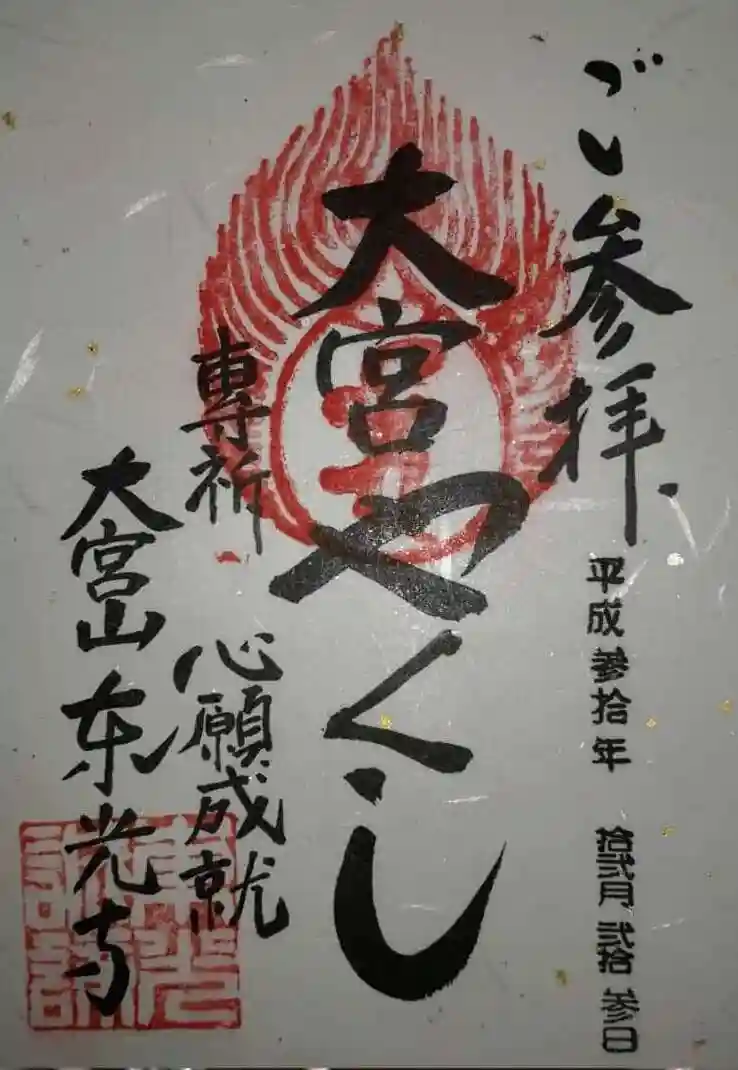 ご参拝
平成参拾年 拾弐月弐拾参日
大宮やくし
専祈 心願成就
大宮山東光寺